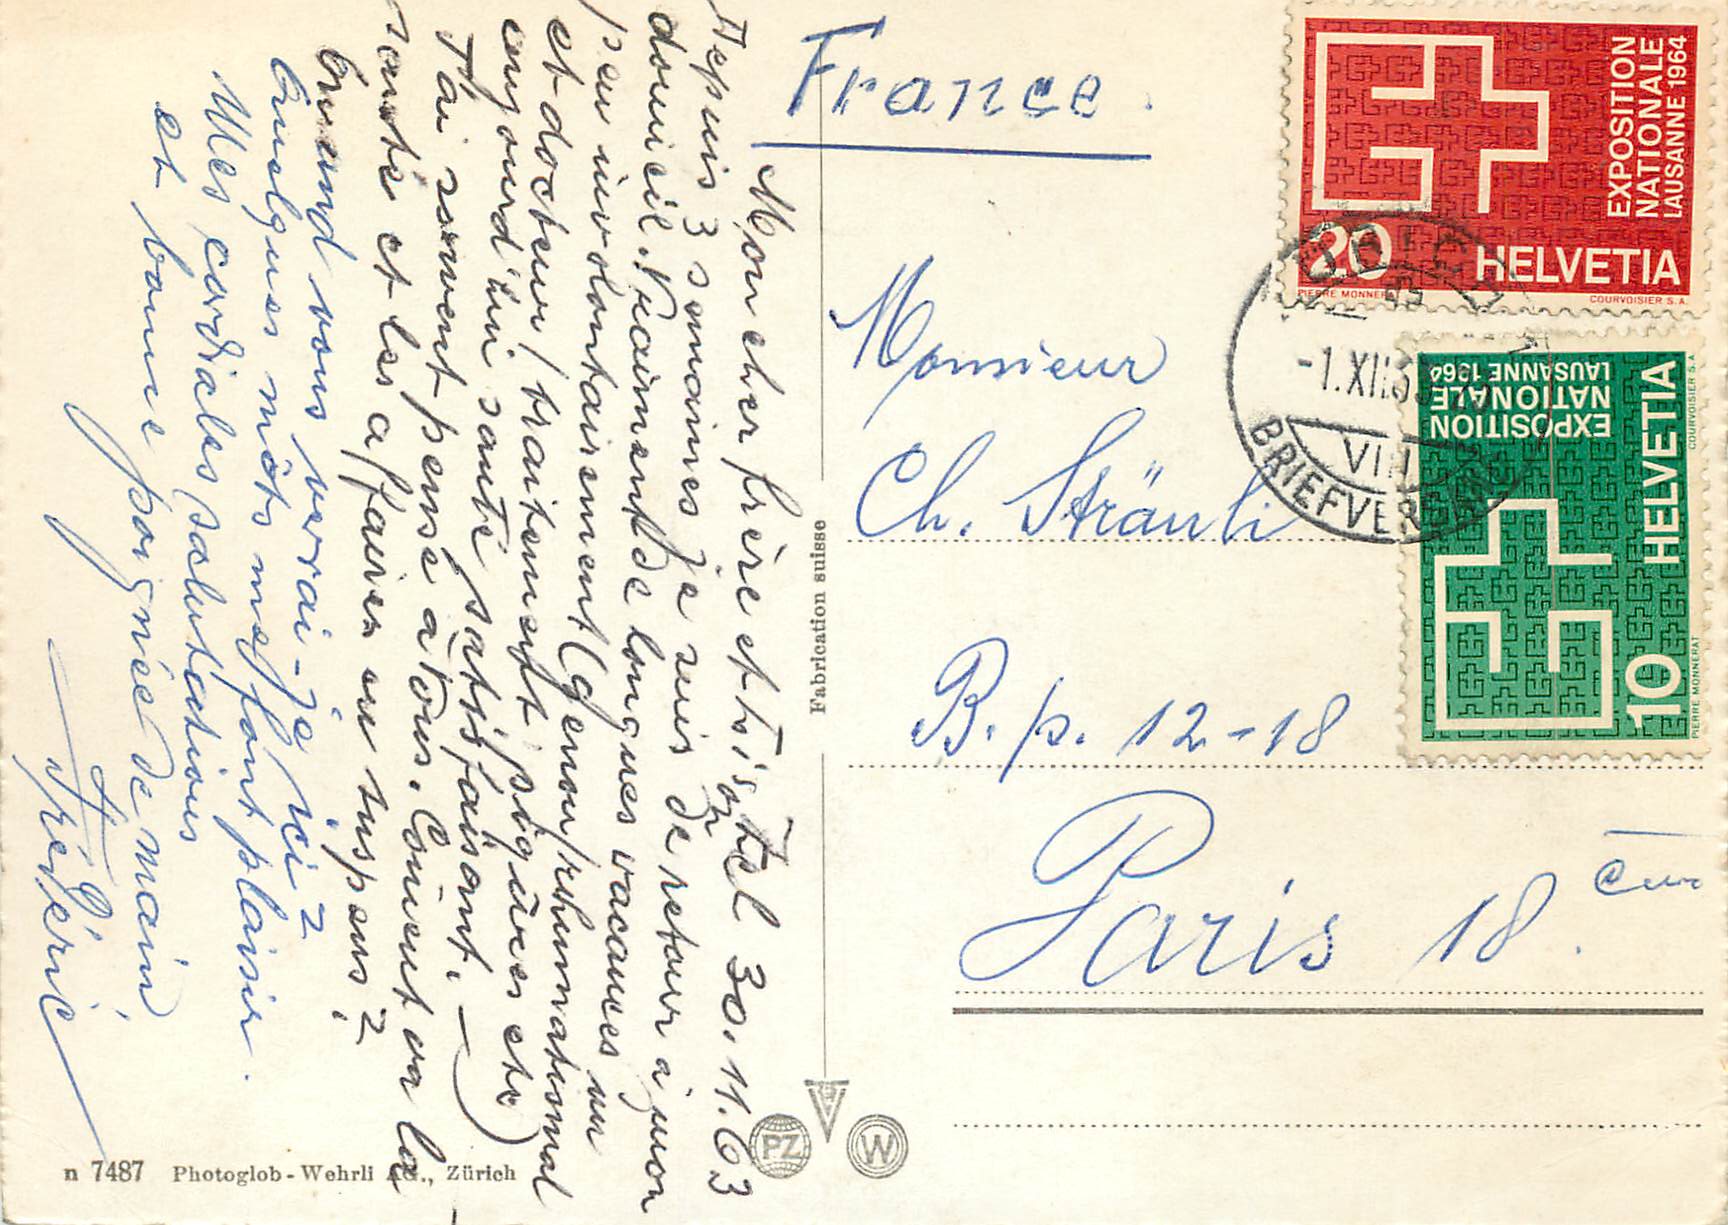 France.
EXPOSITION
NATIONALE
LAUSANNE 1964
20 HELVETIA
PIERRE MONNERAT
COURVOISIER S.A.
EXPOSITION
NATIONALE
LAUSANNE 1964
10 HELVETIA
PIERRE MONNERAT
COURVOISIER S.A.
-1.XII.63
VIII
Monsieur
Ch. Sträuli
B.p. 12-18
Paris 18
Fabrication suisse
Mon cher frère et Tel 30.11.63
Depuis 3 semaines je suis de retour à mon
domicil. Vraiment de longues vacances un
peu involontairement (genou rhumatismal
et docteur, traitement piqûres etc)
aujourd'hui santé satisfaisant. —
J'ai souvent pensé à vous. Coment va la
santé et les affaires en suspens?
Quand vous verrai-je ici?
Quelques mots me font plaisir.
Mes cordiales salutations
et bonne poignée de main
Fréderic
PZ
W
n 7487 Photoglob-Wehrli AG., Zürich